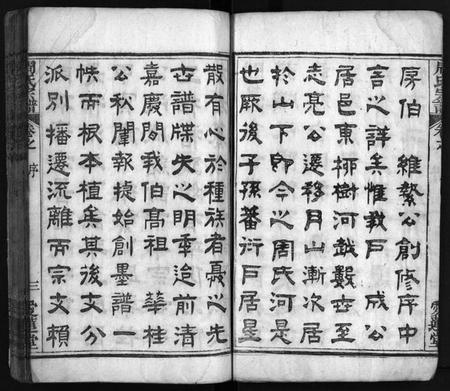 房伯 維公創修序中
言之詳矣惟我戶 成公
居邑東柳樹河越數世至
志亮公遷移月山漸次居
於山下卽今之周氏河是
也厥後子孫蕃衍戶居星
散有心於種族者憂之先
世譜牒失之明季迨前清
嘉慶間我伯高祖 華桂
公秋闈報捷始創墨譜一
帙而根本植矣其後支分
派別播遷流離而宗支賴
周氏宗譜 卷之 序 三 愛蓮堂